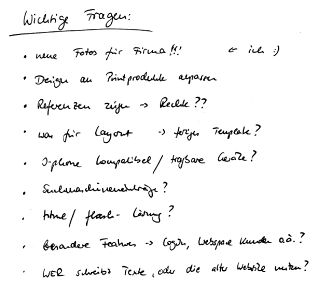 Wichtige Fragen:
• neue Fotos für Firma!!! ← ich :)
• Design an Printprodukte anpassen
• Referenzen zeigen → Rechte??
• was für Layout → fertiges Template?
• I-phone kompatibel / tragbare Geräte?
• Suchmaschineneinträge?
• html / flash-Lösung?
• besondere Features → Login, Webspace Kunden o.ä.?
• WER schreibt Texte, oder die alter Website nutzen?